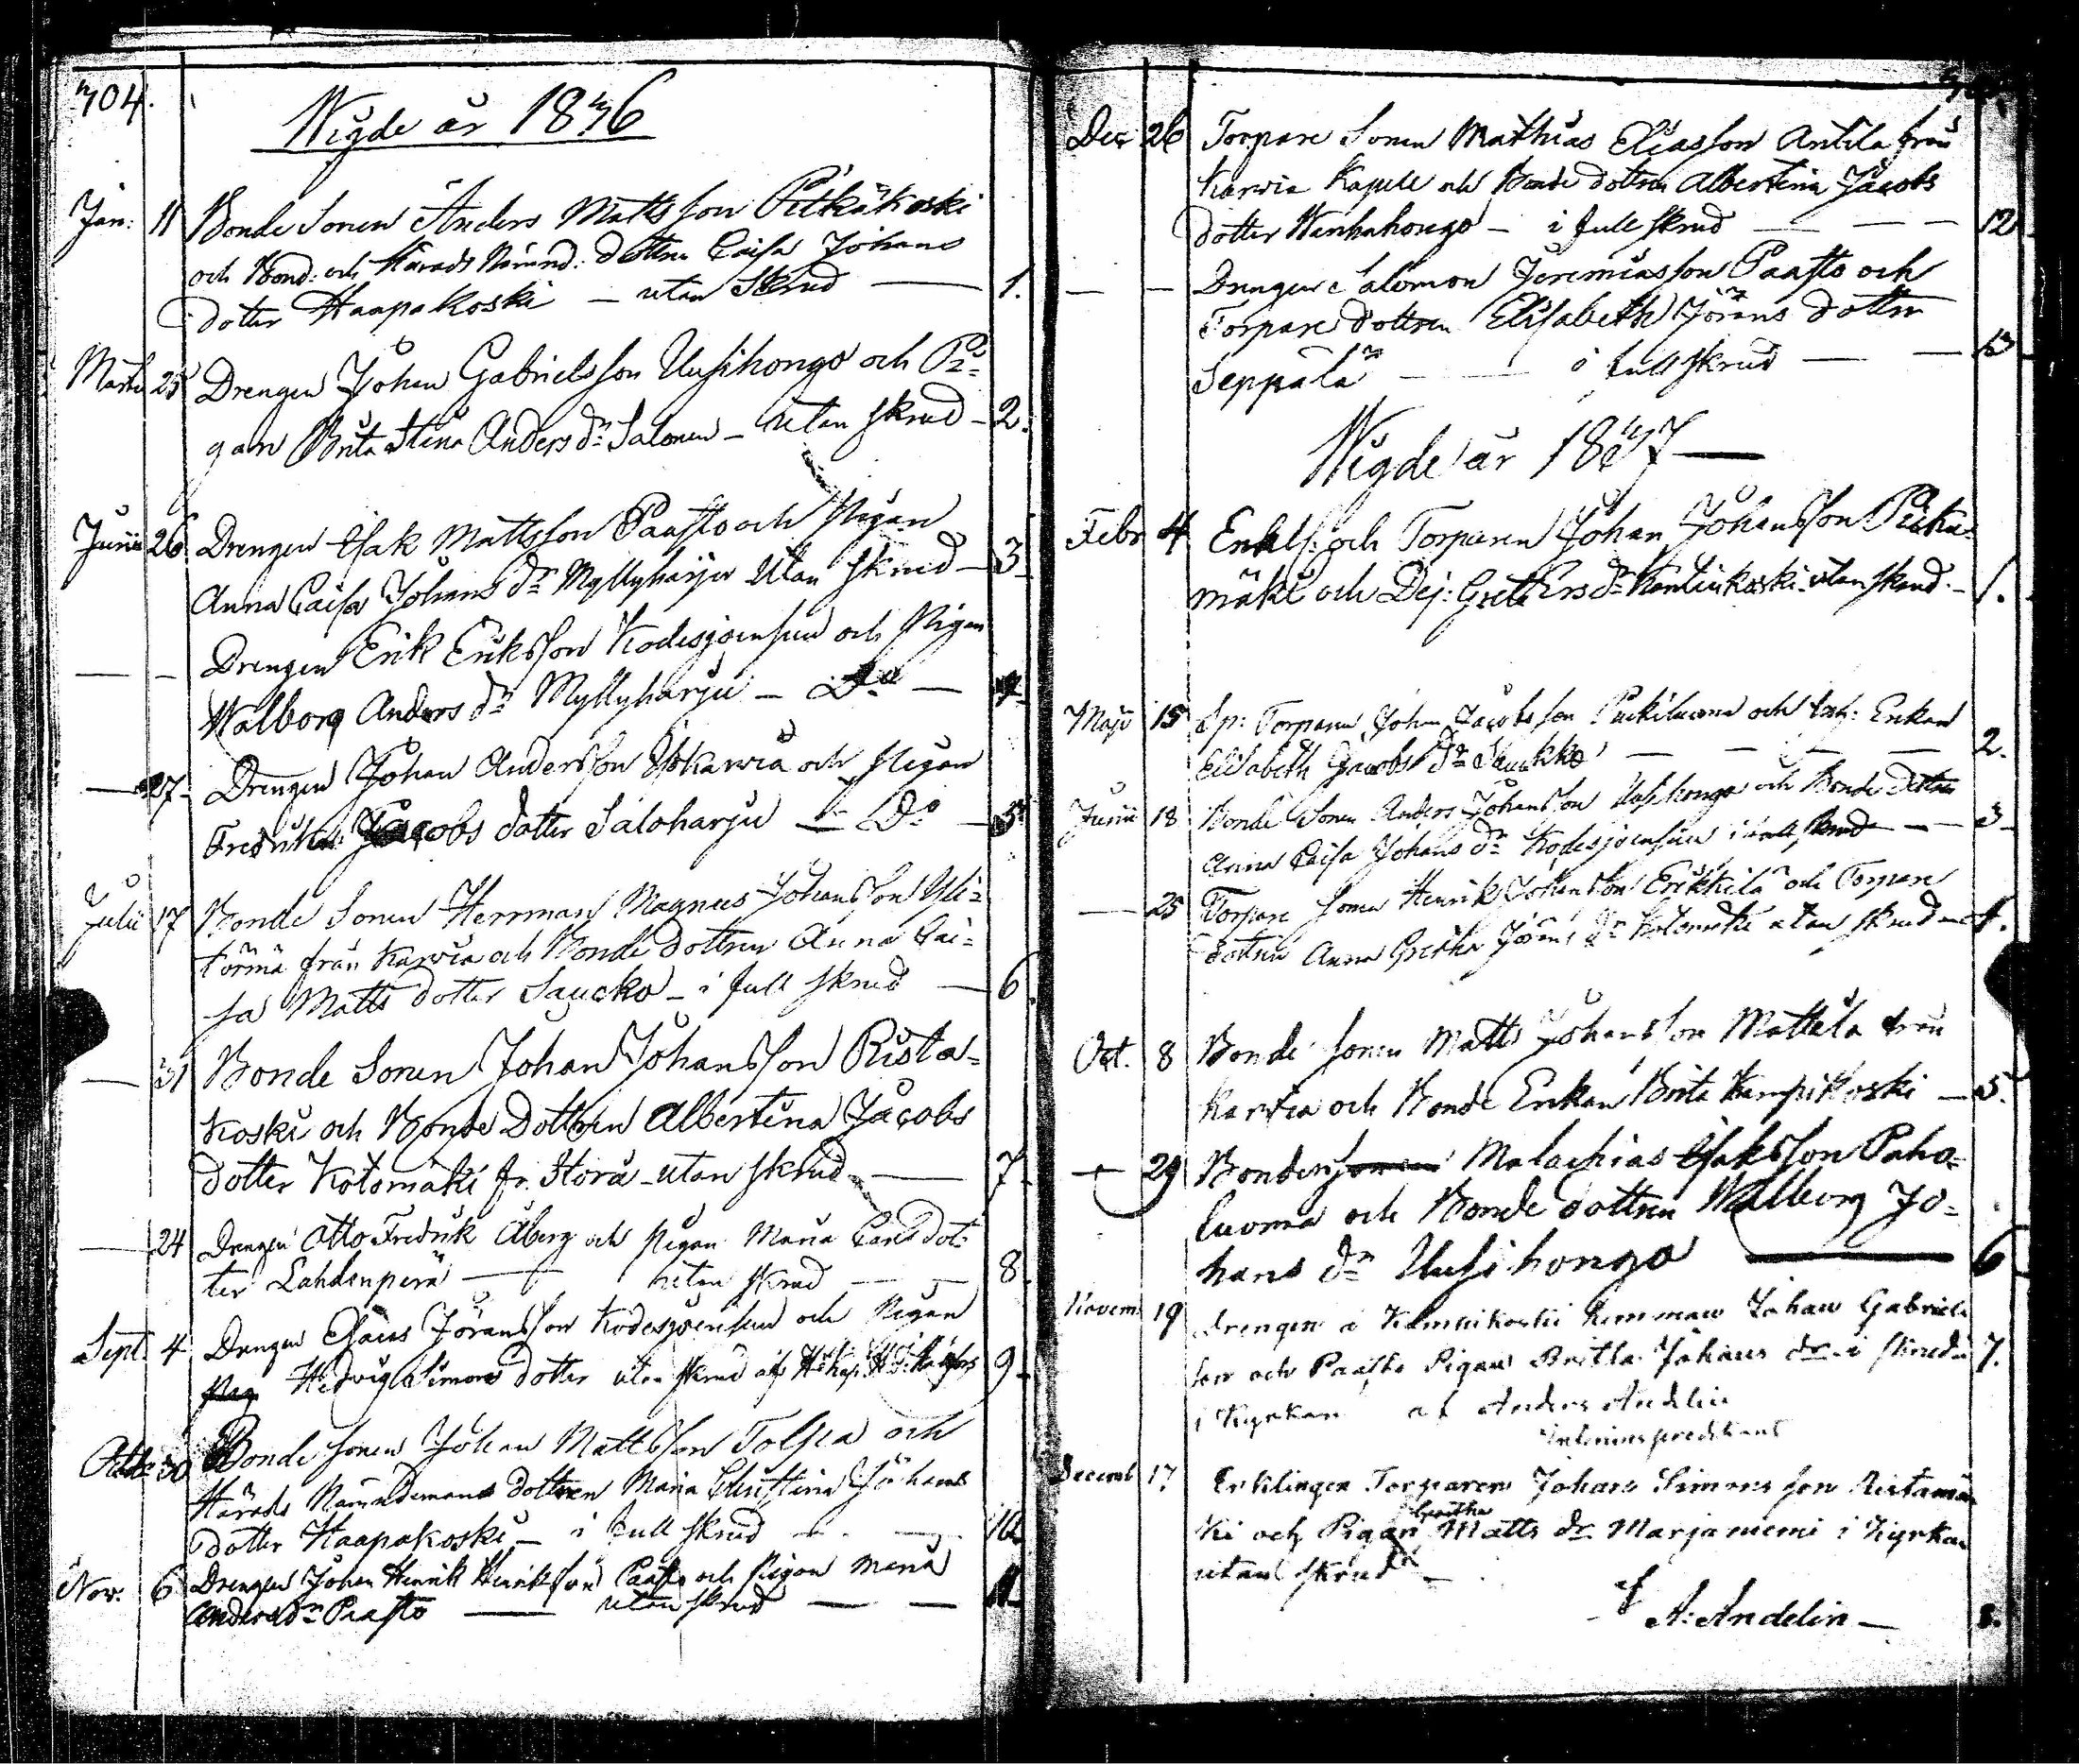 704.
Wigde år 1846
Jan: 11 Bonde Sonen Anders Mattsson Pitkäkoski
och Bond: och Härads Nämnd: dottren Caisa Johans
dotter Haapakoski — utan Skrud — 1.
Martii 25 Drengen Johan Gabrielsson Uusihongo och Pi-
gan Brita Stina Anders dr Salonen — utan skrud — 2.
Junii 26 Drengen Isak Mattsson Paasto och Pigan
Anna Caisa Johans dr Myllyharju utan skrud — 3
— — Drengen Erik Eriksson Kodesjoensuu och Pigan
Walborg Anders dr Myllyharju — Do — 4
— 27 Drengen Johan Andersson Ylikarvia och Pigan
Fredrika Jacobs dotter Saloharju — Do — 5
Julii 17 Bonde Sonen Herrman Magnus Johansson Yli-
törmä från Karvia och Bonde dottren Anna Cai-
sa Matts dotter Saucko — i full skrud — 6
— 31 Bonde Sonen Johan Johansson Rista-
koski och Bonde Dottren Albertina Jacobs
dotter Kotomäki fr. Storå — utan skrud — 7
— 24 Drengen Otto Fredrik Åberg och Pigan Maria Carls dot-
ter Lahdenperä — utan skrud — 8
Sept. 4 Drengen Esaias Jöransson Kodesjoensuu och Pigan
Pig Hedvig Simons dotter utan skrud af 9
30 Bonde sonen Johan Mattsson Tolsia och
Härads Nämndemans dottren Maria Christina Johans
dotter Haapakoski — i full skrud — 10
Nov. 6 Drengen Johan Henrik Henriksson Paasto och Pigan Maria
Anders dr Paasto — utan skrud — 11
Dec 26 Torpare Sonen Mathias Eliasson Antila från
Karvia Kapell och Bonde dottren Albertina Jacobs
dotter Wanhahongo — i full skrud — 12
— — Drengen Salomon Jeremiasson Paasto och
Torpare dottren Elisabeth Jörans dotter
Seppälä — i full skrud — 13
Wigde år 1847 —
Febr 4 Enkl: och Torparen Johan Johansson Pitkä-
mäki och Dej: Greta Ers dr Kantinkoski utan skrud — 1.
Maji 15 Sp: Torparen Johan Jacobsson och Enkan
Elisabeth Jacobs dr Saukko — 2.
Junii 18 Bonde Sonen Anders Johansson Uusihongo och Bonde dottren
Anna Caisa Johans dr Kodesjoensuu i full skrud — 3
— 25 Torpare sonen Henrik Johansson Erkkilä och Torpare
dottren Anna Gretha Jörans dr Kotomäki utan skrud — 4.
Oct. 8 Bonde sonen Matts Johansson Mattila från
Karvia och Bonde Enkan Brita Kampikoski — 5.
— 29 Bonden sonen Malachias Isaksson Paha-
luoma och Bonde dottren Walborg Jo-
hans dr Uusihongo — 6
Novem: 19 Drengen å hemman Johan Gabriels
son och Paasto Pigan Britha Johans dr i skrud 7.
i Kyrkan af Anders Andelin
Decemb 17 Enklingen Torparen Johan Simonsson Ristamä-
ki och Pigan Gretha Matts dr Marjaniemi i Kyrkan
utan skrud —
af
A: Andelin — 8.